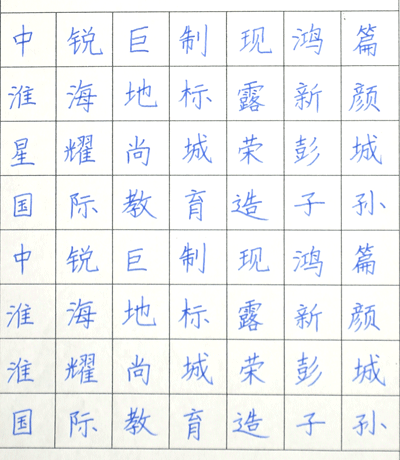 中锐巨制现鸿篇
淮海地标露新颜
星耀尚城荣彭城
国际教育造子孙
中锐巨制现鸿篇
淮海地标露新颜
淮耀尚城荣彭城
国际教育造子孙